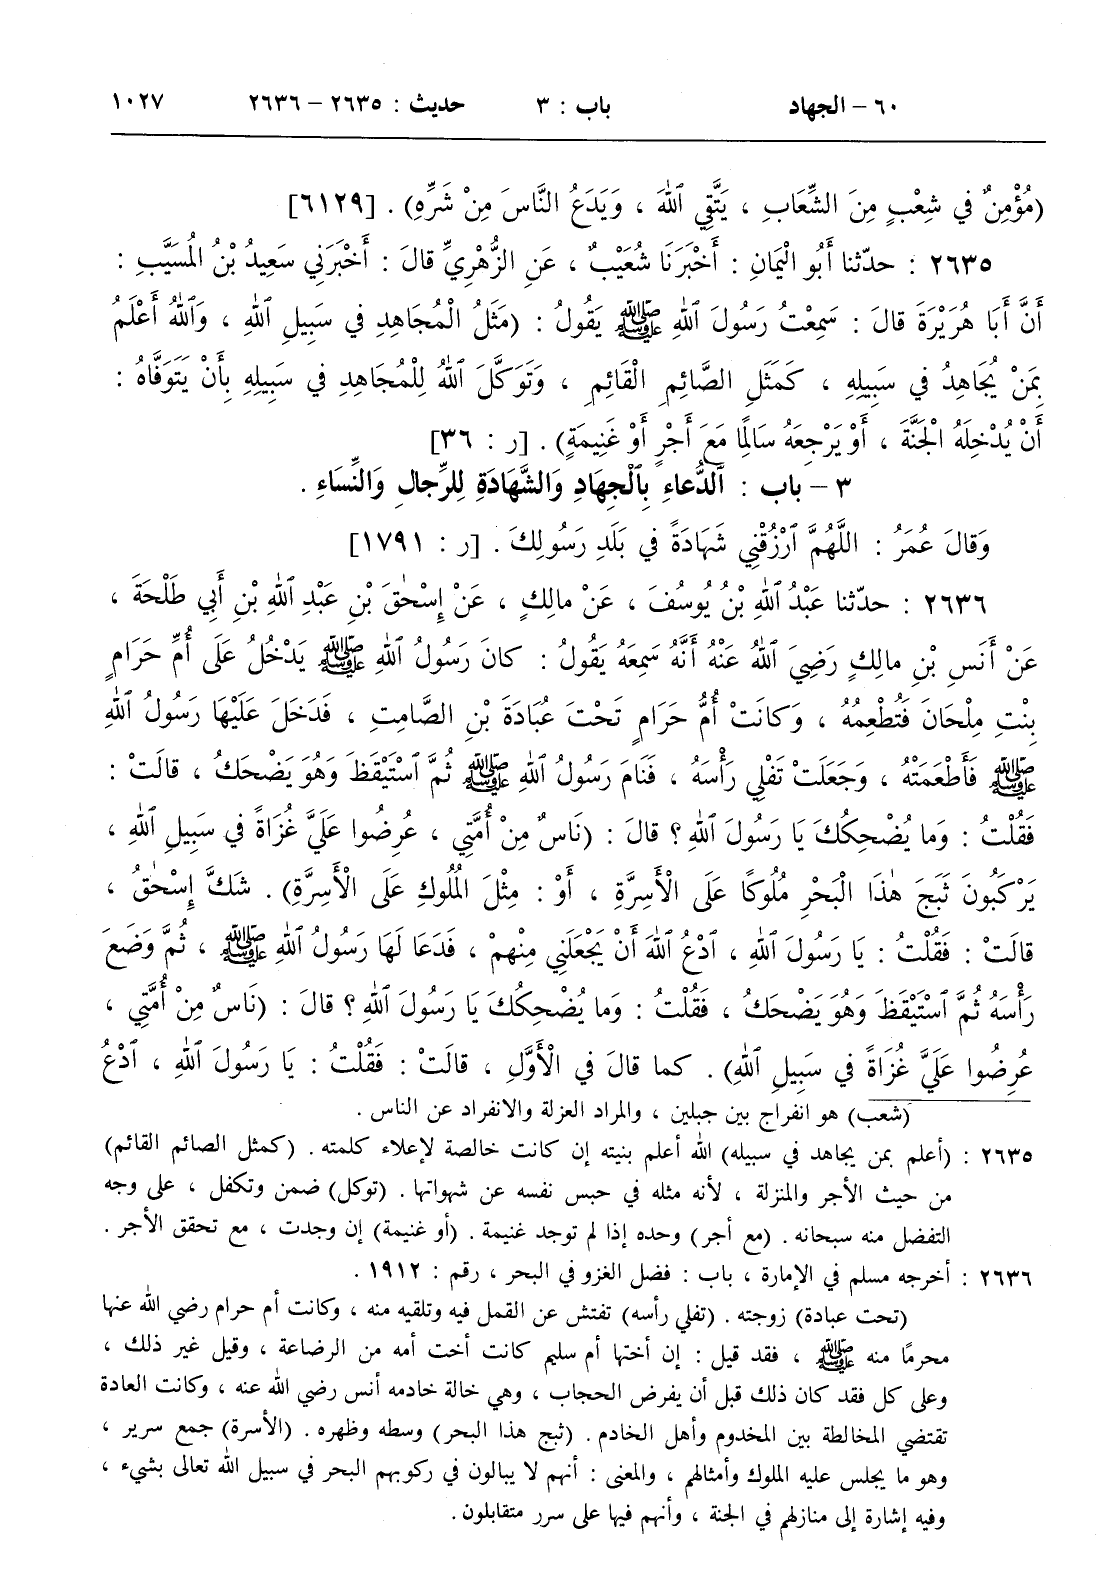 ٦٠ – الجهاد باب : ٣ حديث : ٢٦٣٥ – ٢٦٣٦ ١٠٢٧
(مُؤْمِنٌ في شِعْبٍ مِنَ الشِّعَابِ ، يَتَّقِي ٱللهَ ، وَيَدَعُ النَّاسَ مِنْ شَرِّهِ) . [٦١٢٩]
٢٦٣٥ : حدّثنا أَبُو الْيَمانِ : أَخْبَرَنَا شُعَيْبٌ ، عَنِ الزُّهْرِيِّ قالَ : أَخْبَرَنِي سَعِيدُ بْنُ الْمُسَيَّبِ :
أَنَّ أَبَا هُرَيْرَةَ قالَ : سَمِعْتُ رَسُولَ ٱللهِ ﷺ يَقُولُ : (مَثَلُ الْمُجَاهِدِ في سَبِيلِ ٱللهِ ، وَٱللهُ أَعْلَمُ
بِمَنْ يُجَاهِدُ في سَبِيلِهِ ، كَمَثَلِ الصَّائِمِ الْقَائِمِ ، وَتَوَكَّلَ ٱللهُ لِلْمُجَاهِدِ في سَبِيلِهِ بِأَنْ يَتَوَفَّاهُ :
أَنْ يُدْخِلَهُ الْجَنَّةَ ، أَوْ يَرْجِعَهُ سَالِمًا مَعَ أَجْرٍ أَوْ غَنِيمَةٍ) . [ر : ٣٦]
٣ – باب : ٱلدُّعاءِ بِٱلْجِهَادِ وَالشَّهَادَةِ لِلرِّجالِ وَالنِّسَاءِ .
وَقالَ عُمَرُ : اللَّهُمَّ ٱرْزُقْنِي شَهَادَةً في بَلَدِ رَسُولِكَ . [ر : ١٧٩١]
٢٦٣٦ : حدّثنا عَبْدُ ٱللهِ بْنُ يُوسُفَ ، عَنْ مالِكٍ ، عَنْ إِسْحٰقَ بْنِ عَبْدِ ٱللهِ بْنِ أَبِي طَلْحَةَ ،
عَنْ أَنَسِ بْنِ مالِكٍ رَضِيَ ٱللهُ عَنْهُ أَنَّهُ سَمِعَهُ يَقُولُ : كانَ رَسُولُ ٱللهِ ﷺ يَدْخُلُ عَلَى أُمِّ حَرَامٍ
بِنْتِ مِلْحَانَ فَتُطْعِمُهُ ، وَكانَتْ أُمُّ حَرَامٍ تَحْتَ عُبَادَةَ بْنِ الصَّامِتِ ، فَدَخَلَ عَلَيْهَا رَسُولُ ٱللهِ
ﷺ فَأَطْعَمَتْهُ ، وَجَعَلَتْ تَفْلِي رَأْسَهُ ، فَنَامَ رَسُولُ ٱللهِ ﷺ ثُمَّ ٱسْتَيْقَظَ وَهُوَ يَضْحَكُ ، قالَتْ :
فَقُلْتُ : وَما يُضْحِكُكَ يَا رَسُولَ ٱللهِ ؟ قالَ : (نَاسٌ مِنْ أُمَّتِي ، عُرِضُوا عَلَيَّ غُزَاةً في سَبِيلِ ٱللهِ ،
يَرْكَبُونَ ثَبَجَ هٰذَا الْبَحْرِ مُلُوكًا عَلَى الْأَسِرَّةِ ، أَوْ : مِثْلَ الْمُلُوكِ عَلَى الْأَسِرَّةِ) . شَكَّ إِسْحٰقُ ،
قالَتْ : فَقُلْتُ : يَا رَسُولَ ٱللهِ ، ٱدْعُ ٱللهَ أَنْ يَجْعَلَنِي مِنْهمْ ، فَدَعَا لَهَا رَسُولُ ٱللهِ ﷺ ، ثُمَّ وَضَعَ
رَأْسَهُ ثُمَّ ٱسْتَيْقَظَ وَهُوَ يَضْحَكُ ، فَقُلْتُ : وَما يُضْحِكُكَ يَا رَسُولَ ٱللهِ ؟ قالَ : (نَاسٌ مِنْ أُمَّتِي ،
عُرِضُوا عَلَيَّ غُزَاةً في سَبِيلِ ٱللهِ) . كما قالَ في الْأَوَّلِ ، قالَتْ : فَقُلْتُ : يَا رَسُولَ ٱللهِ ، ٱدْعُ
(شعب) هو انفراج بين جبلين ، والمراد العزلة والانفراد عن الناس .
٢٦٣٥ : (أعلم بمن يجاهد في سبيله) الله أعلم بنيته إن كانت خالصة لإعلاء كلمته . (كمثل الصائم القائم)
من حيث الأجر والمنزلة ، لأنه مثله في حبس نفسه عن شهواتها . (توكل) ضمن وتكفل ، على وجه
التفضل منه سبحانه . (مع أجر) وحده إذا لم توجد غنيمة . (أو غنيمة) إن وجدت ، مع تحقق الأجر .
٢٦٣٦ : أخرجه مسلم في الإمارة ، باب : فضل الغزو في البحر ، رقم : ١٩١٢ .
(تحت عبادة) زوجته . (تفلي رأسه) تفتش عن القمل فيه وتلقيه منه ، وكانت أم حرام رضي الله عنها
محرمًا منه ﷺ ، فقد قيل : إن أختها أم سليم كانت أخت أمه من الرضاعة ، وقيل غير ذلك ،
وعلى كل فقد كان ذلك قبل أن يفرض الحجاب ، وهي خالة خادمه أنس رضي الله عنه ، وكانت العادة
تقتضي المخالطة بين المخدوم وأهل الخادم . (ثبج هذا البحر) وسطه وظهره . (الأسرة) جمع سرير ،
وهو ما يجلس عليه الملوك وأمثالهم ، والمعنى : أنهم لا يبالون في ركوبهم البحر في سبيل الله تعالى بشيء ،
وفيه إشارة إلى منازلهم في الجنة ، وأنهم فيها على سرر متقابلون .